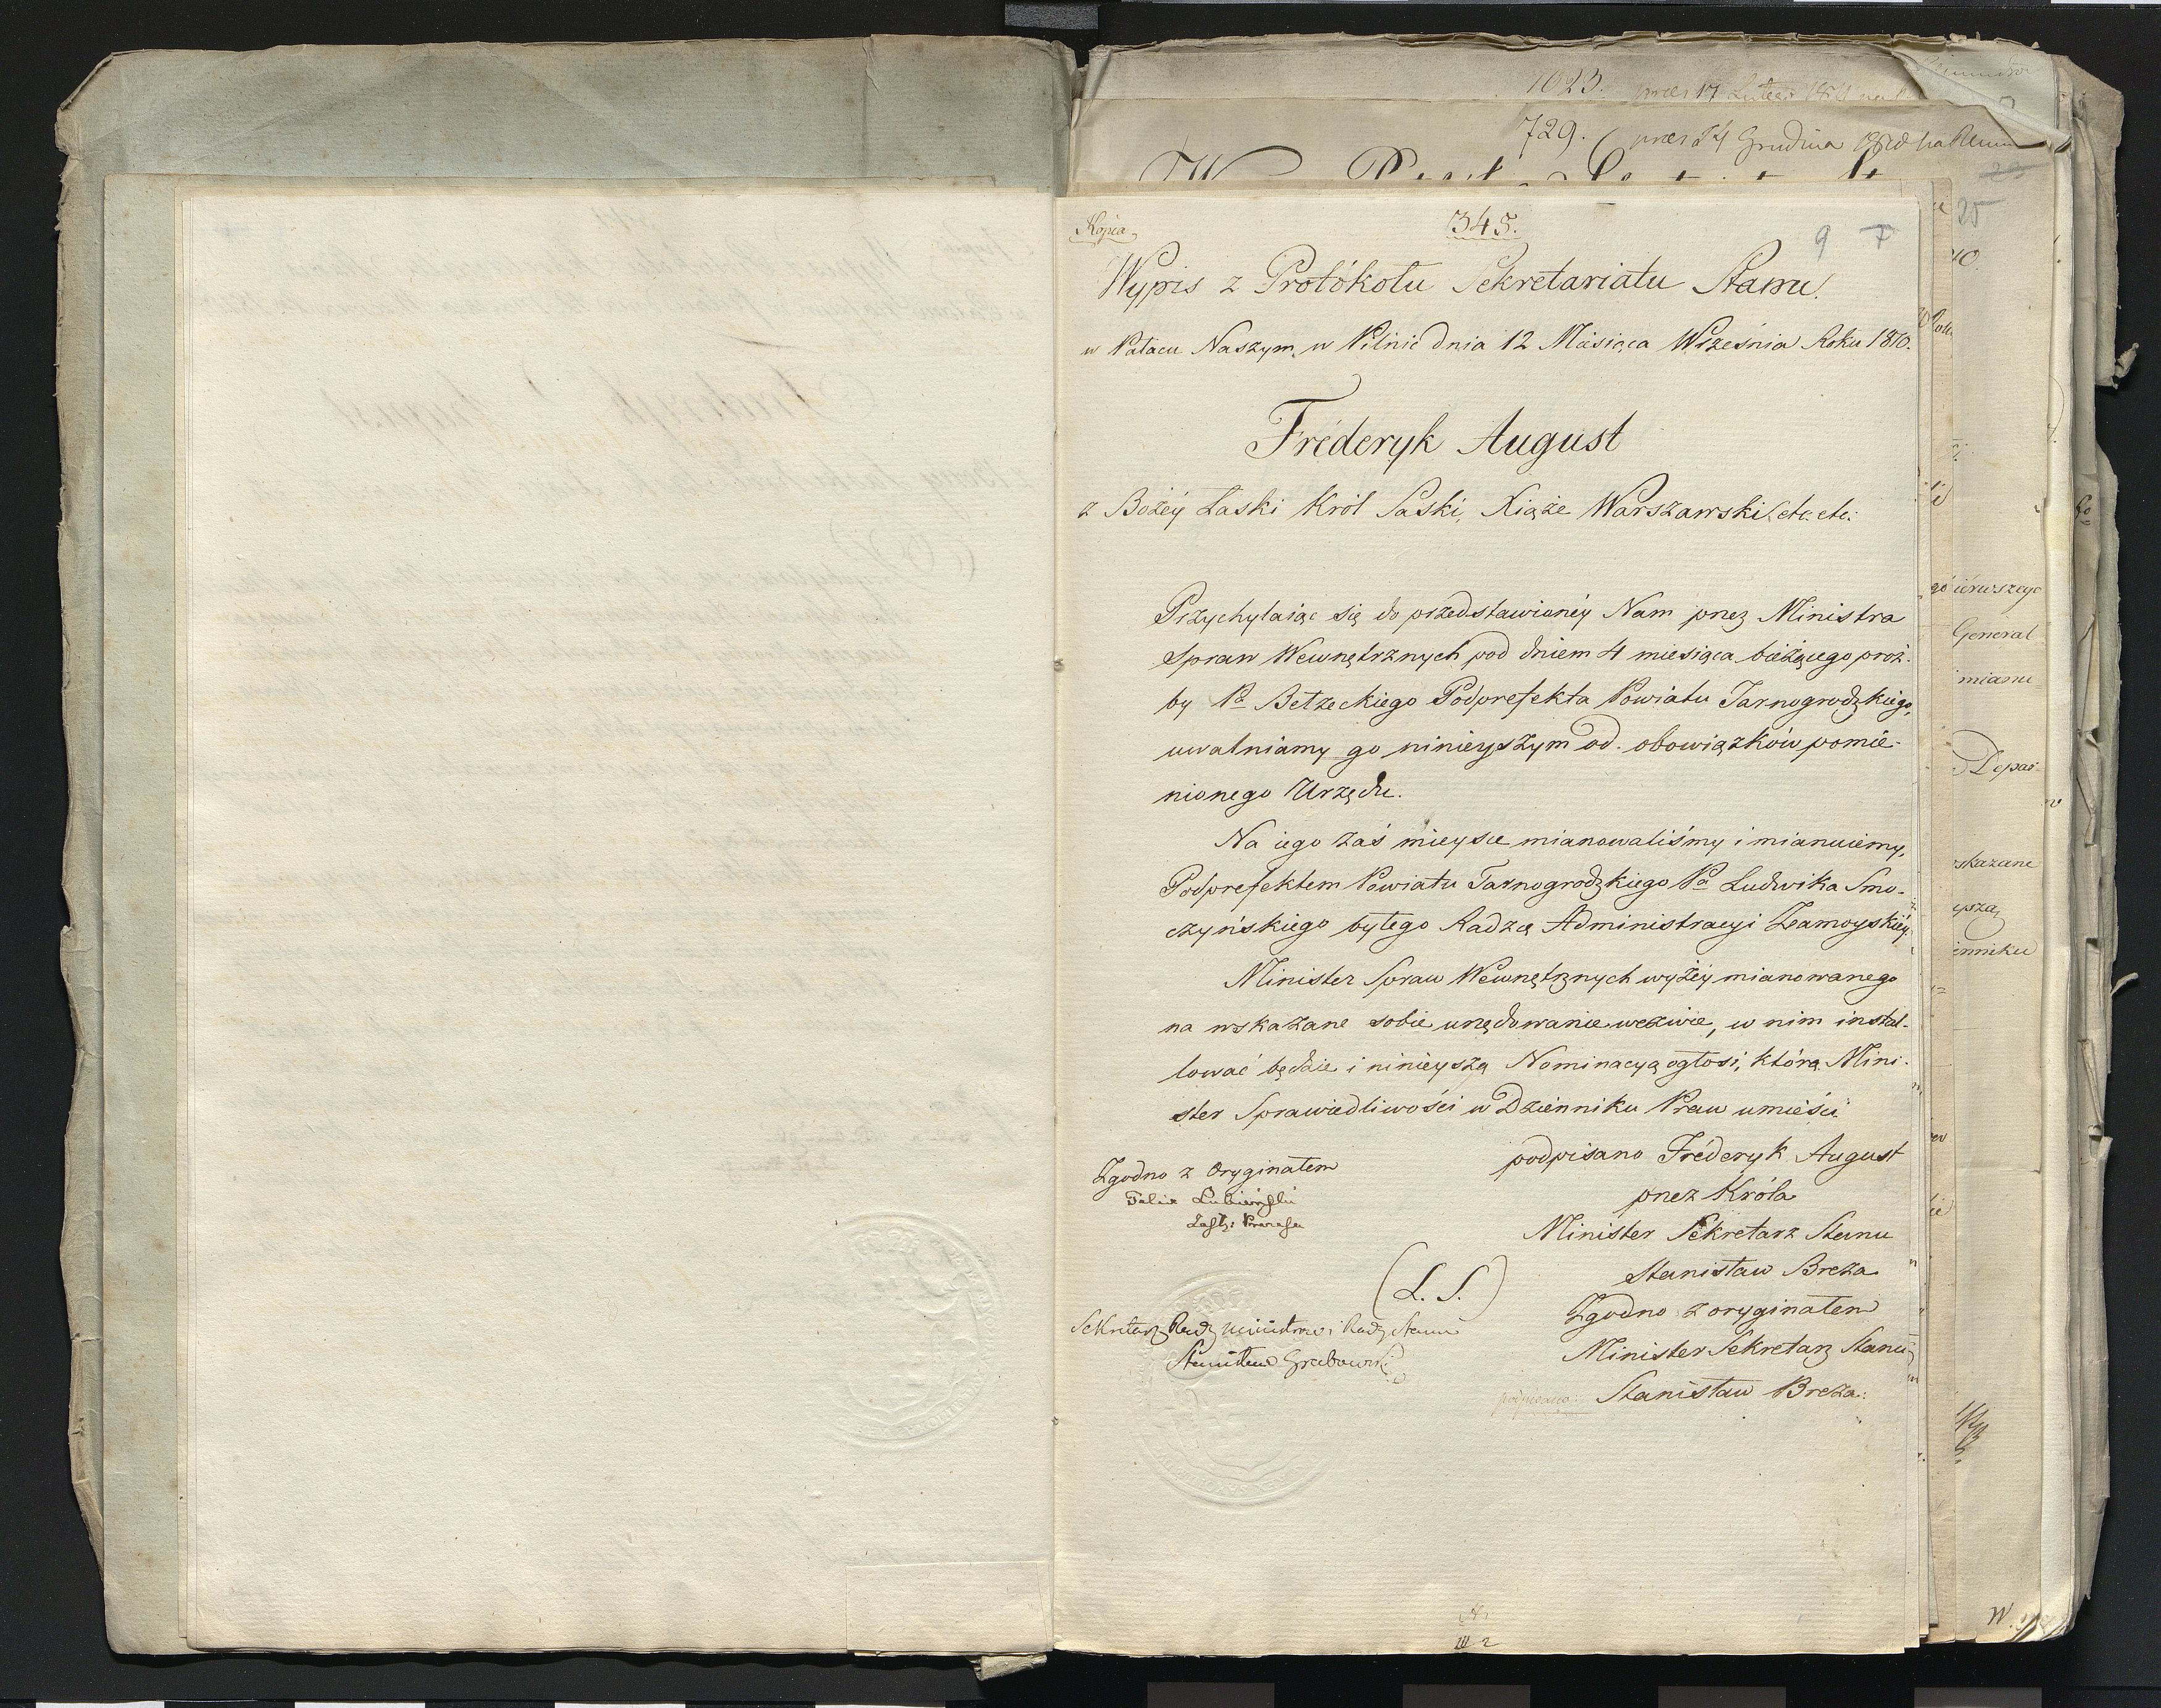 1023. præs 17 Lutego
729. præs 24 Grudnia
25
10
Kopia
345.
9 7
Wypis z Protókołu Sekretariatu Stanu.
w Pałacu Naszym w Pilnic dnia 12 Miesiąca Września Roku 1810.
Fréderyk August
z Bożéy Łaski Król Saski, Xiąże Warszawski, etc: etc:
Przychylaiąc się do przedstawionéy Nam przez Ministra
Spraw Wewnętrznych pod dniem 4 miesiąca bieżącego proź-
by Pa Bełzeckiego Podprefekta Powiatu Tarnogrodzkiego,
uwalniamy go ninieyszym od obowiązków pomie-
nionego Urzędu.
Na iego zaś mieysce mianowaliśmy i mianuiemy,
Podprefektem Powiatu Tarnogrodzkiego Pa Ludwika Smo-
czyńskiego byłego Radzcę Administracyi Zamoyskiéy.
Minister Spraw Wewnętrznych wyżéy mianowanego
na wskazane sobie urzędowanie wezwie, w nim instal-
lować będzie i ninieyszą Nominacyą ogłosi, którą Mini-
ster Sprawiedliwości w Dzienniku Praw umieści
podpisano Fréderyk August
przez Króla
Minister Sekretarz Stanu
Stanisław Breza
Zgodno z oryginałem
Minister Sekretarz Stanu
podpisano: Stanisław Breza.
Zgodno z Oryginałem
Felix Łubieński
Zastę: Prezesa
(L. S.)
Sekretarz Rady Ministrów i Rady Stanu
Stanisław Grabowski
ierwszego
General
mianu
Depar-
skazane
yszą
ienniku